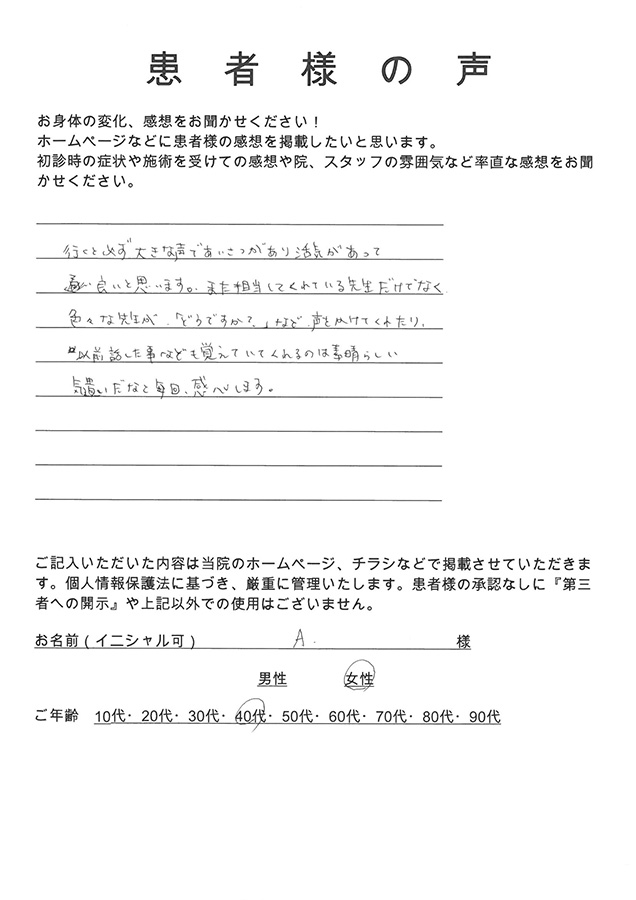 患者様の声
お身体の変化、感想をお聞かせください！
ホームページなどに患者様の感想を掲載したいと思います。
初診時の症状や施術を受けての感想や院、スタッフの雰囲気など率直な感想をお聞
かせください。
行くと必ず大きな声であいさつがあり活気があって
良いと思います。また担当してくれている先生だけでなく
色々な先生が、「どうですか？」など声をかけてくれたり、
以前話した事なども覚えていてくれるのは素晴らしい
気遣いだなと毎回、感心します。
ご記入いただいた内容は当院のホームページ、チラシなどで掲載させていただきま
す。個人情報保護法に基づき、厳重に管理いたします。患者様の承認なしに『第三
者への開示』や上記以外での使用はございません。
お名前(イニシャル可) A. 様
男性 女性
ご年齢 10代・20代・30代・40代・50代・60代・70代・80代・90代